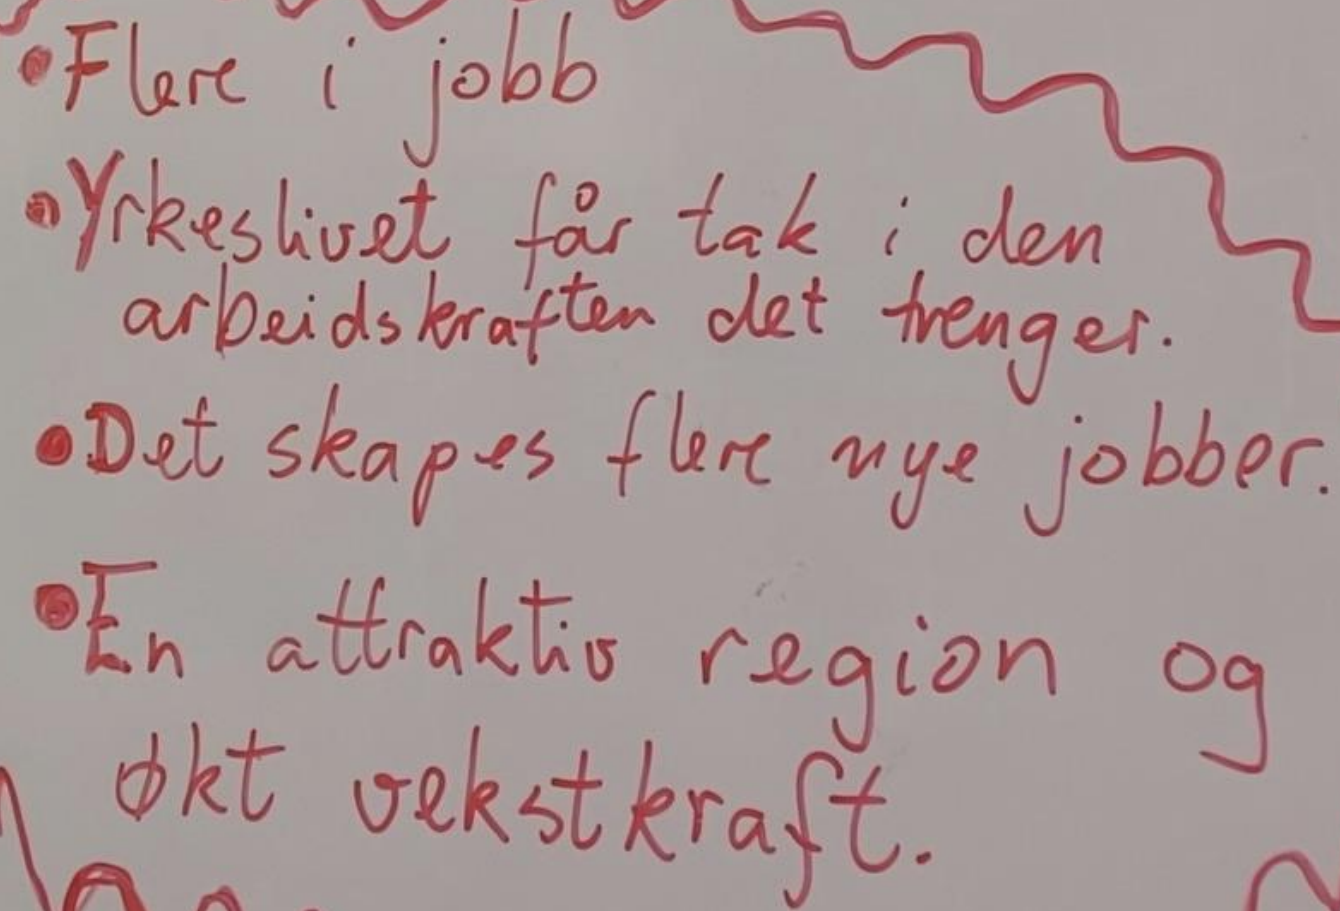 • Flere i jobb
• Yrkeslivet får tak i den
arbeidskraften det trenger.
• Det skapes flere nye jobber.
• En attraktiv region og
økt vekstkraft.